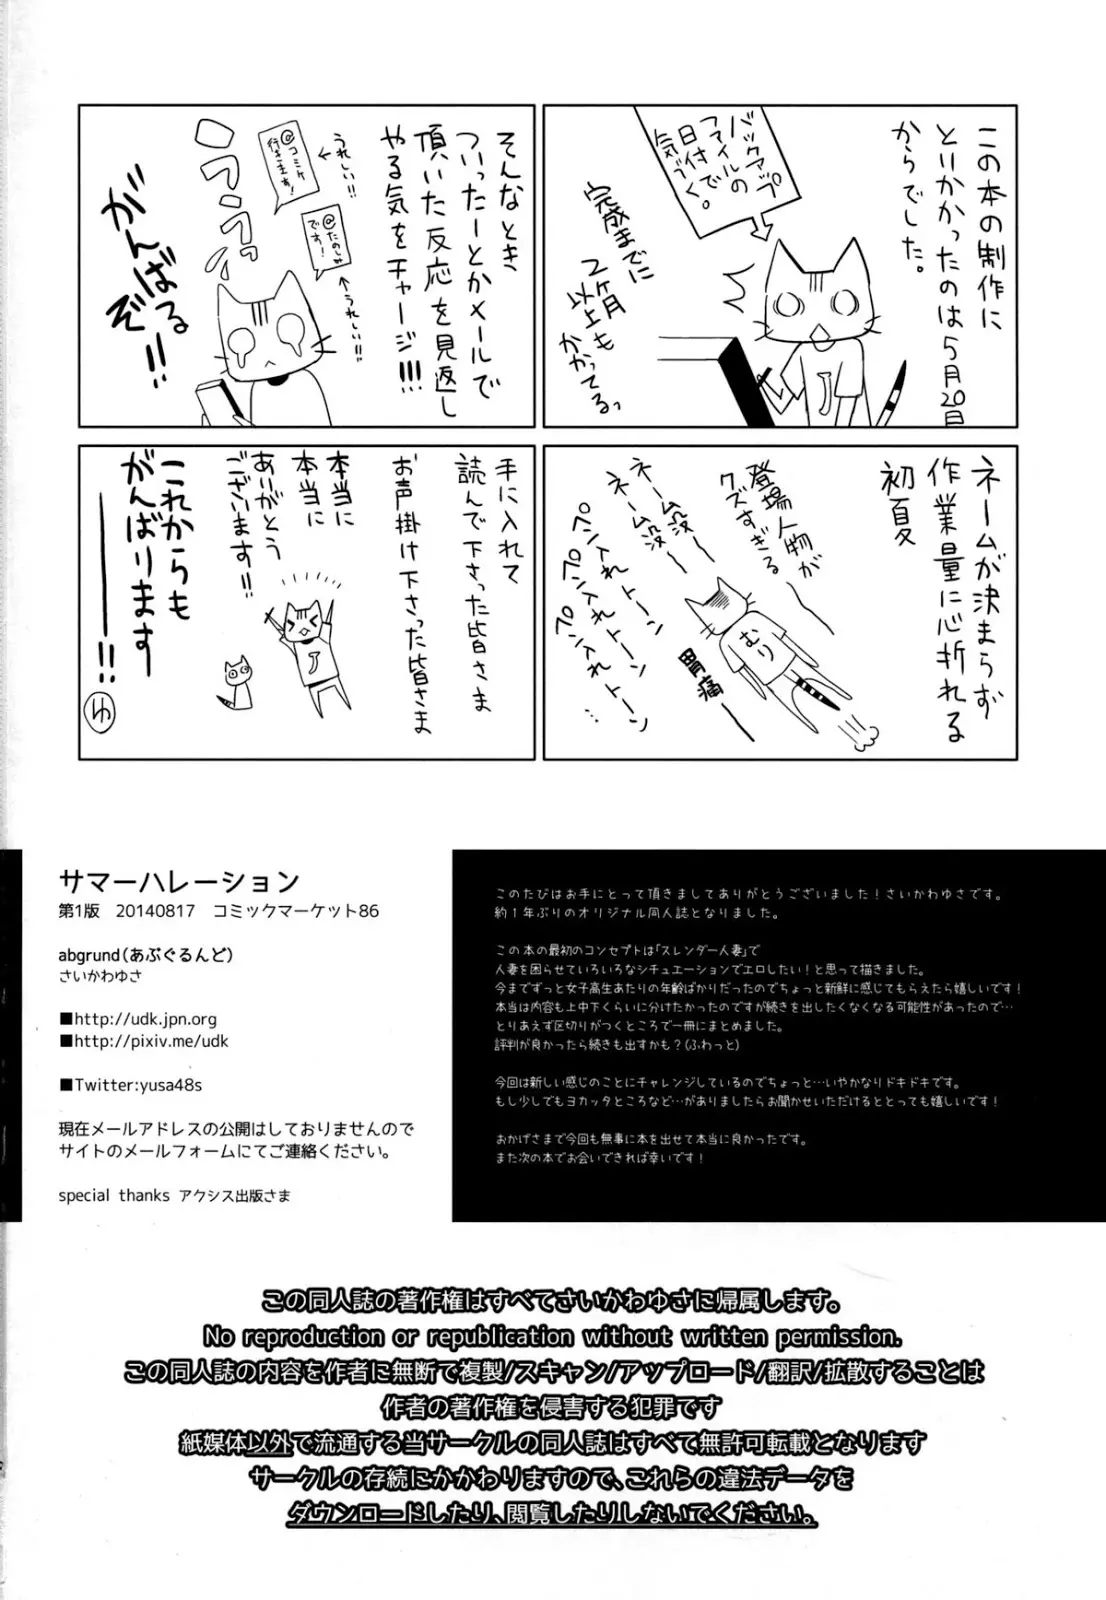 この本の制作に
とりかかったのは5月20日
からでした。
バックアップ
ファイルの
日付で
気づく。
完成までに
2ヶ月
以上も
かかってるっ
ネームが決まらず
作業量に心折れる
初夏
登場人物が
クズすぎる
ネーム没〜
ネーム没〜
ペン入れトーン
ペン入れトーン
ペン入れトーン
…
むり
胃痛〜
そんなとき
ついったーとかメールで
頂いた反応を見返し
やる気をチャージ!!!
うれしい!!
@コミケ
行きます!
@たのしみ
です!
うれしい!!
がんばる
ぞ!!
手に入れて
読んで下さった皆さま
お声掛け下さった皆さま
本当に
本当に
ありがとう
ございます!!
これからも
がんばります
――!!
ゆ
サマーハレーション
第1版 20140817 コミックマーケット86
abgrund(あぶぐるんど)
さいかわゆさ
■http://udk.jpn.org
■http://pixiv.me/udk
■Twitter:yusa48s
現在メールアドレスの公開はしておりませんので
サイトのメールフォームにてご連絡ください。
special thanks アクシス出版さま
このたびはお手にとって頂きましてありがとうございました!さいかわゆさです。
約1年ぶりのオリジナル同人誌となりました。
この本の最初のコンセプトは「スレンダー人妻」で
人妻を困らせていろいろなシチュエーションでエロしたい!と思って描きました。
今までずっと女子高生あたりの年齢ばかりだったのでちょっと新鮮に感じてもらえたら嬉しいです!
本当は内容も上中下くらいに分けたかったのですが続きを出したくなくなる可能性があったので…
とりあえず区切りがつくところで一冊にまとめました。
評判が良かったら続きも出すかも?(ふわっと)
今回は新しい感じのことにチャレンジしているのでちょっと…いやかなりドキドキです。
もし少しでもヨカッタところなど…がありましたらお聞かせいただけるととっても嬉しいです!
おかげさまで今回も無事に本を出せて本当に良かったです。
また次の本でお会いできれば幸いです!
この同人誌の著作権はすべてさいかわゆさに帰属します。
No reproduction or republication without written permission.
この同人誌の内容を作者に無断で複製/スキャン/アップロード/翻訳/拡散することは
作者の著作権を侵害する犯罪です
紙媒体以外で流通する当サークルの同人誌はすべて無許可転載となります
サークルの存続にかかわりますので、これらの違法データを
ダウンロードしたり、閲覧したりしないでください。